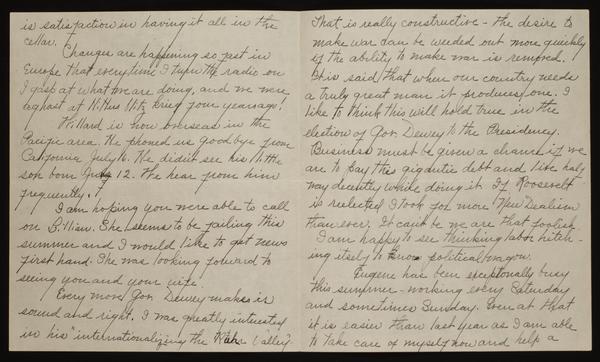 is satisfaction in having it all in the
cellar.
Changes are happening so fast in
Europe that every time I turn the radio on
I gasp at what we are doing, and we were
aghast at Hitlers blitz krieg four years ago!
Willard is now overseas in the
Pacific area. He phoned us good bye from
California July 16. He didn't see his little
son born July 12. We hear from him
frequently.
I am hoping you were able to call
on Billian. She seems to be failing this
summer and I would like to get news
first hand. She was looking forward to
seeing you and your wife.
Every move Gov. Dewey makes is
sound and right. I was greatly interested
in his "internationalizing the Ruhr Valley."
That is really constructive - the desire to
make war can be weeded out more quickly
if the ability to make war is removed.
said that when our country needs
a truly great man it produces one. I
like to think this will hold true in the
election of Gov. Dewey to the Presidency.
Business must be given a chance if we
are to pay this gigantic debt and live half
way decently while doing it. If Roosevelt
is reelected I look for more "New Dealism"
than ever. It can't be we are that foolish.
I am happy to see thinking labor hitch-
ing itself to political wagon.
Eugene has been exceptionally busy
this summer - working every Saturday
and sometimes Sunday. Even at that
it is easier than last year as I am able
to take care of myself now and help a